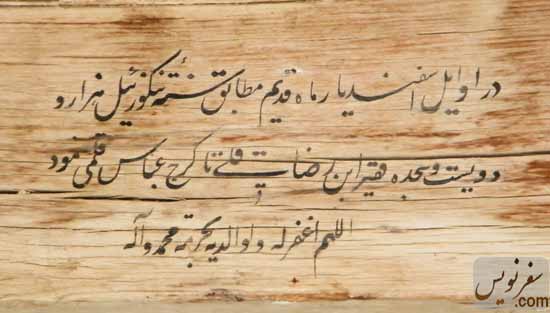 در اوایل اسفندیار ماه قدیم مطابق تنگوزئیل هزار و
دویست و هجده فقیر ابن رضا قلمی نمود
اللهم اغفر له و لوالدیه بحرمة محمد و آله
سفرنویس
.com